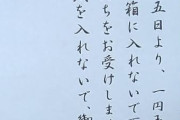 五日より、一円
箱に入れないで下
ちをお受けしま
を入れないで、御